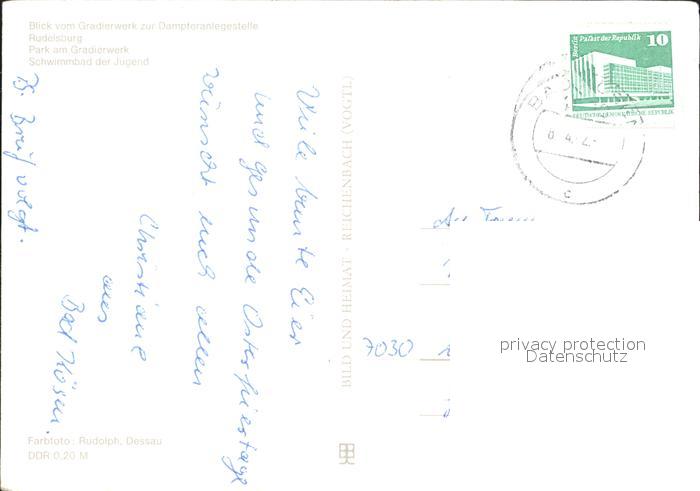 Blick vom Gradierwerk zur Dampferanlegestelle
Rudelsburg
Park am Gradierwerk
Schwimmbad der Jugend
Viele bunte Eier
und gesunde Osterfeiertage
wünscht euch allen
Christiane
aus
Bad Kösen.
Br. Brief folgt.
BILD UND HEIMAT · REICHENBACH (VOGTL)
Berlin Palast der Republik
10
DEUTSCHE DEMOKRATISCHE REPUBLIK
BAD
c
An Fam
7030
privacy protection
Datenschutz
Farbfoto: Rudolph, Dessau
DDR 0,20 M